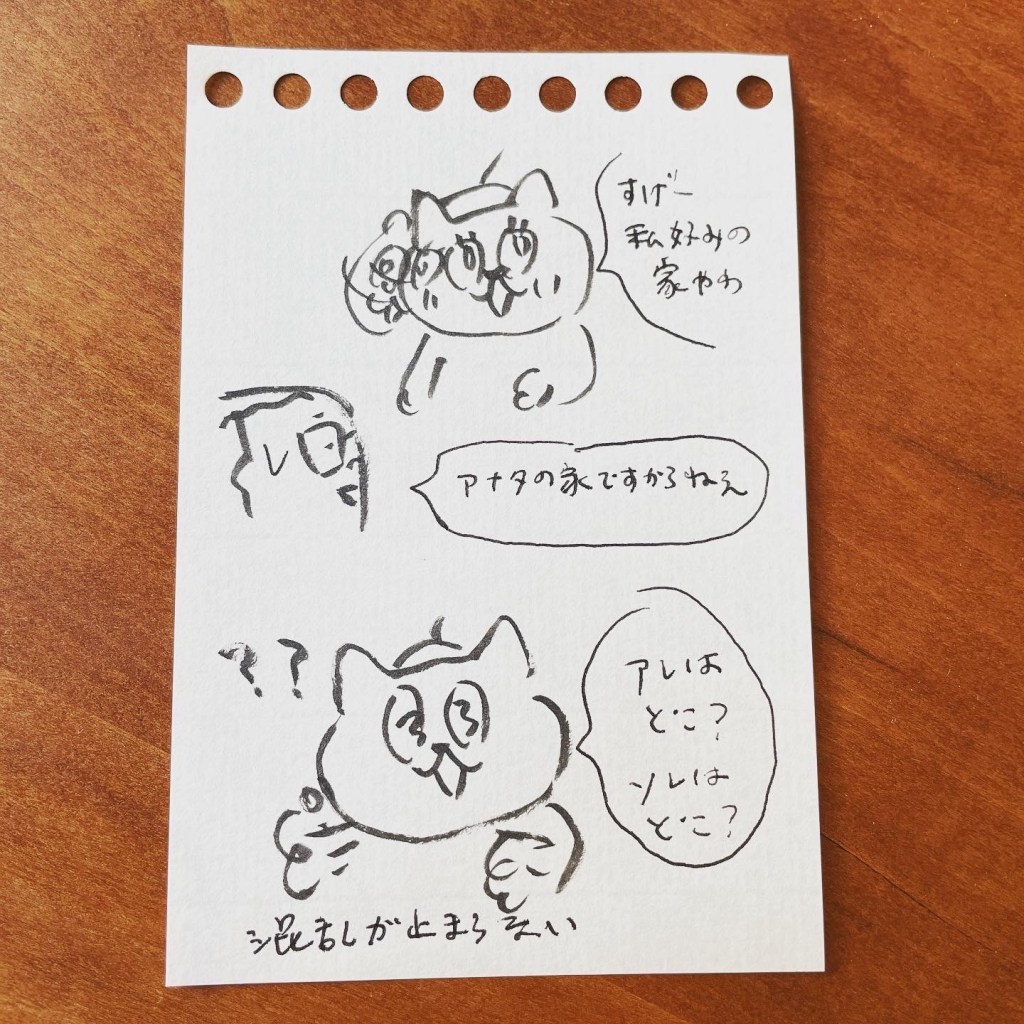 すげー
私好みの
家やわ
アナタの家ですからねえ
？？
アレは
どこ？
ソレは
どこ？
混乱が止まらない